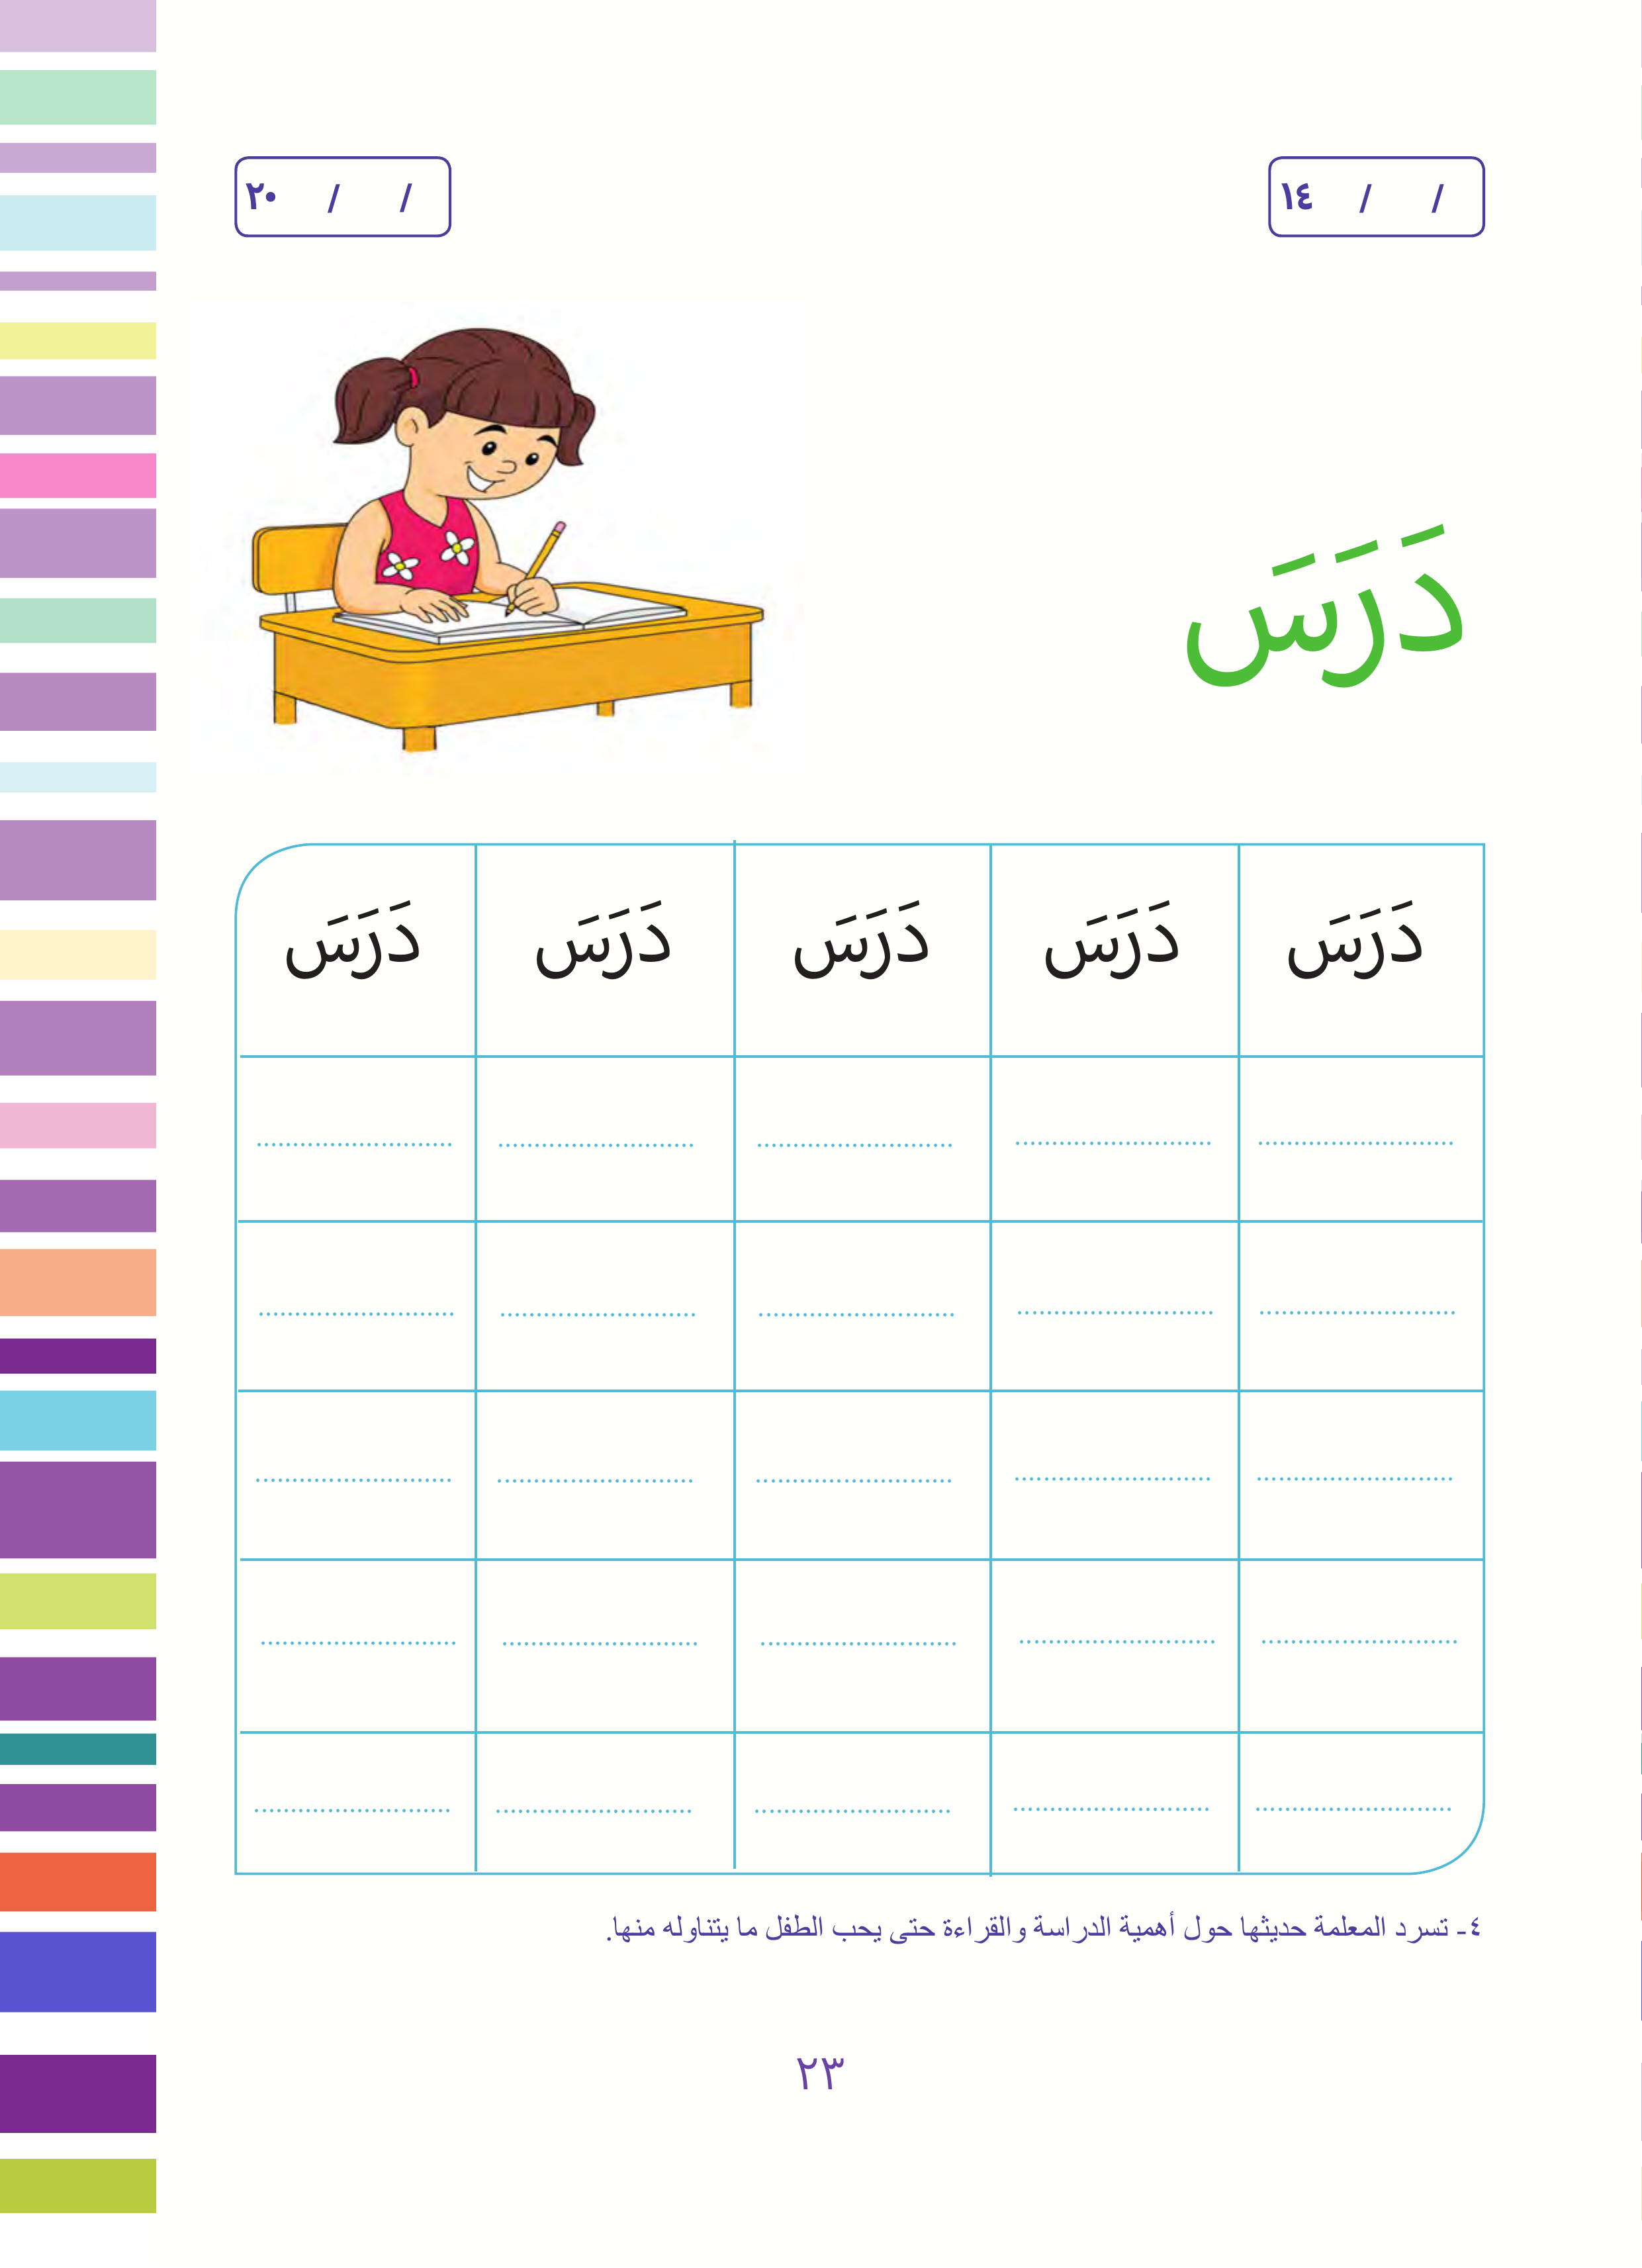 / / ١٤
/ / ٢٠
دَرَسَ
دَرَسَ دَرَسَ دَرَسَ دَرَسَ دَرَسَ
٤- تسرد المعلمة حديثها حول أهمية الدراسة والقراءة حتى يحب الطفل ما يتناوله منها.
٢٣